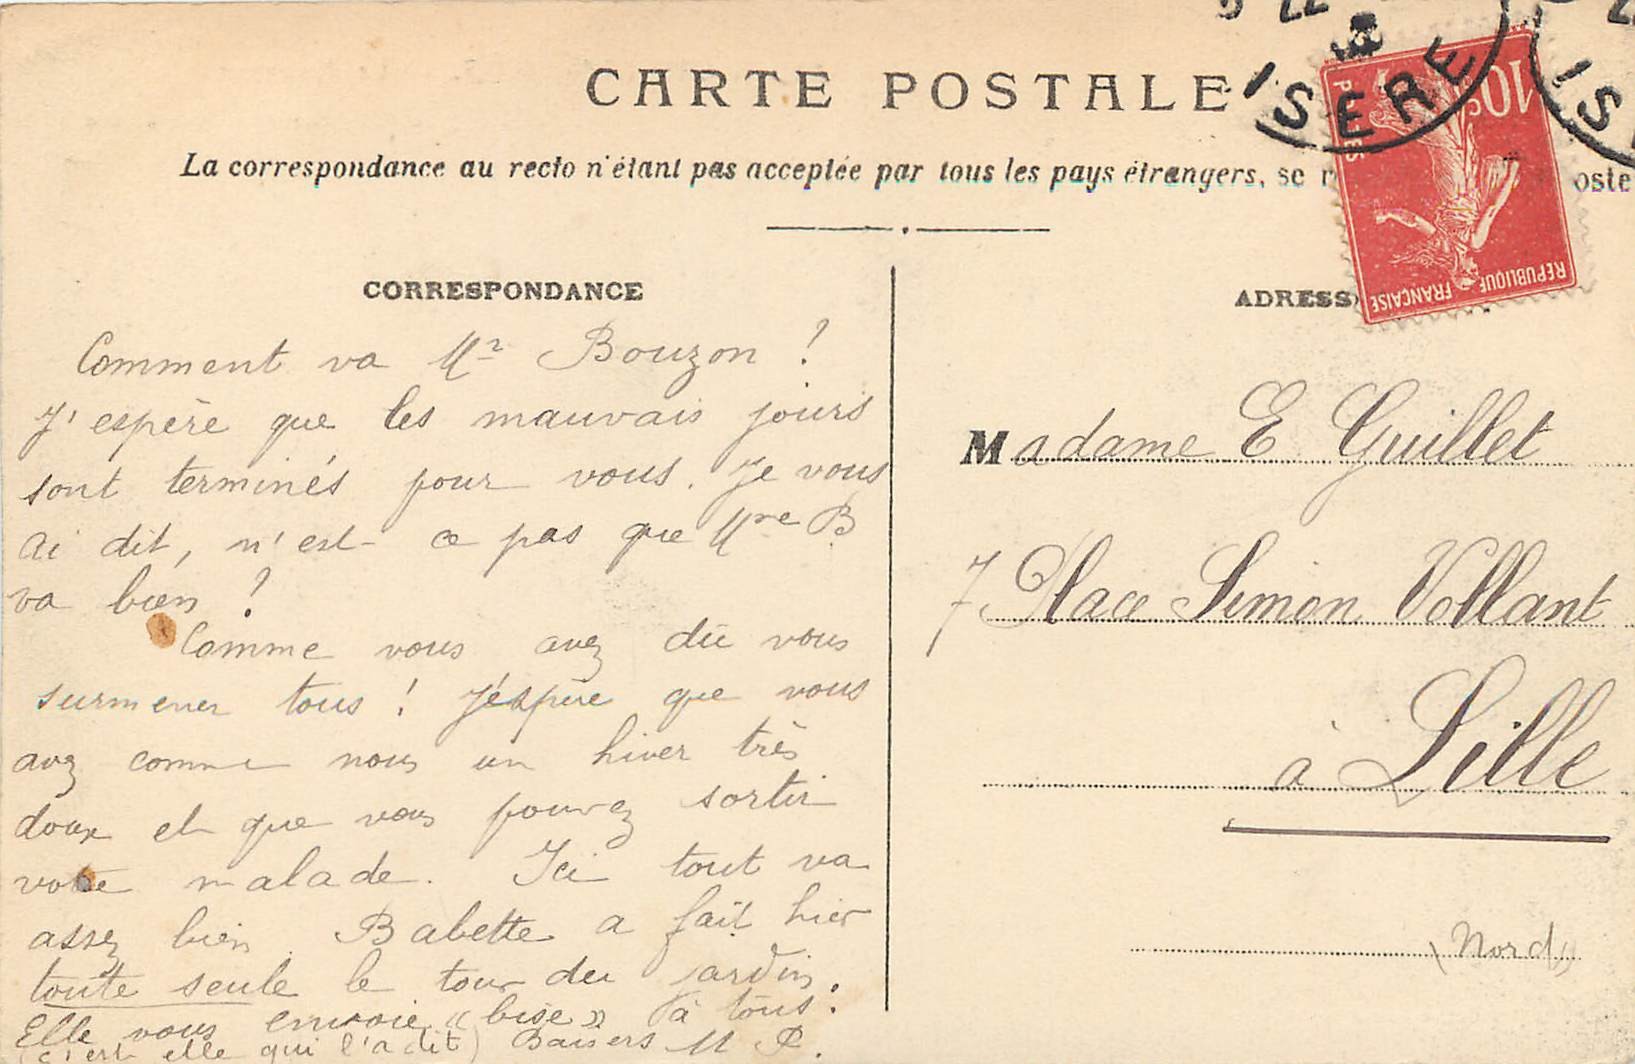 CARTE POSTALE
La correspondance au recto n'étant pas acceptée par tous les pays étrangers, se r oste
ISERE
10c
POSTES
REPUBLIQUE FRANÇAISE
CORRESPONDANCE
Comment va Mr Bouzon ?
J'espère que les mauvais jours
sont terminés pour vous. Je vous
ai dit, n'est-ce pas que Mme B
va bien ?
Comme vous avez dû vous
surmener tous ! J'espère que vous
avez comme nous un hiver très
doux et que vous pouvez sortir
votre malade. Ici tout va
assez bien. Babette a fait hier
toute seule le tour du jardin.
Elle vous envoie « bise » à tous.
(c'est elle qui l'a dit) Baisers M P.
ADRESS
Madame E Guillet
7 Place Simon Vollant
à Lille
(Nord)